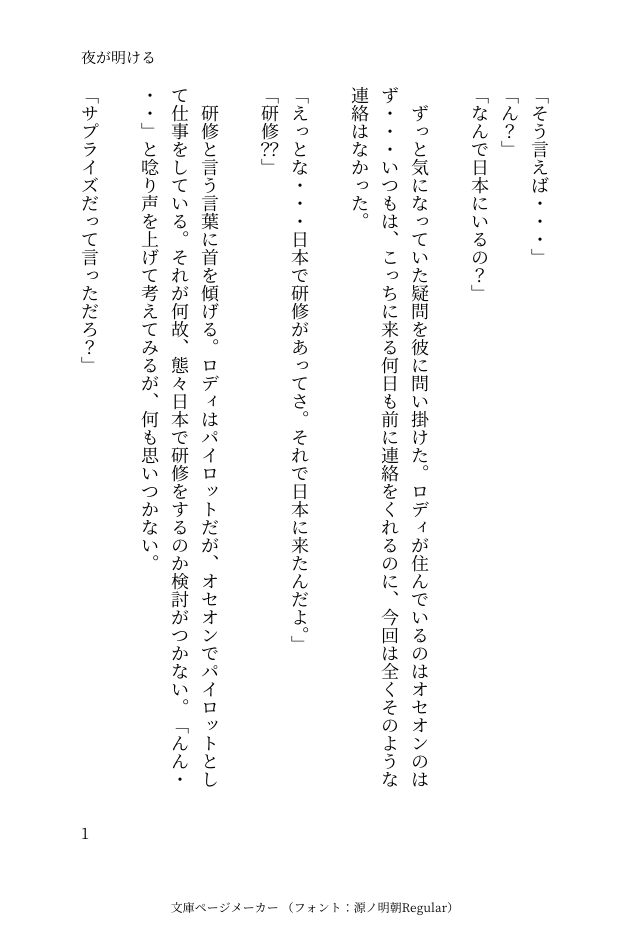 夜が明ける
「そう言えば・・・」
「ん？」
「なんで日本にいるの？」
ずっと気になっていた疑問を彼に問い掛けた。ロディが住んでいるのはオセオンのは
ず・・・いつもは、こっちに来る何日も前に連絡をくれるのに、今回は全くそのような
連絡はなかった。
「えっとな・・・日本で研修があってさ。それで日本に来たんだよ。」
「研修??」
研修と言う言葉に首を傾げる。ロディはパイロットだが、オセオンでパイロットとし
て仕事をしている。それが何故、態々日本で研修をするのか検討がつかない。「んん・
・・」と唸り声を上げて考えてみるが、何も思いつかない。
「サプライズだって言っただろ？」
1
文庫ページメーカー （フォント：源ノ明朝Regular）